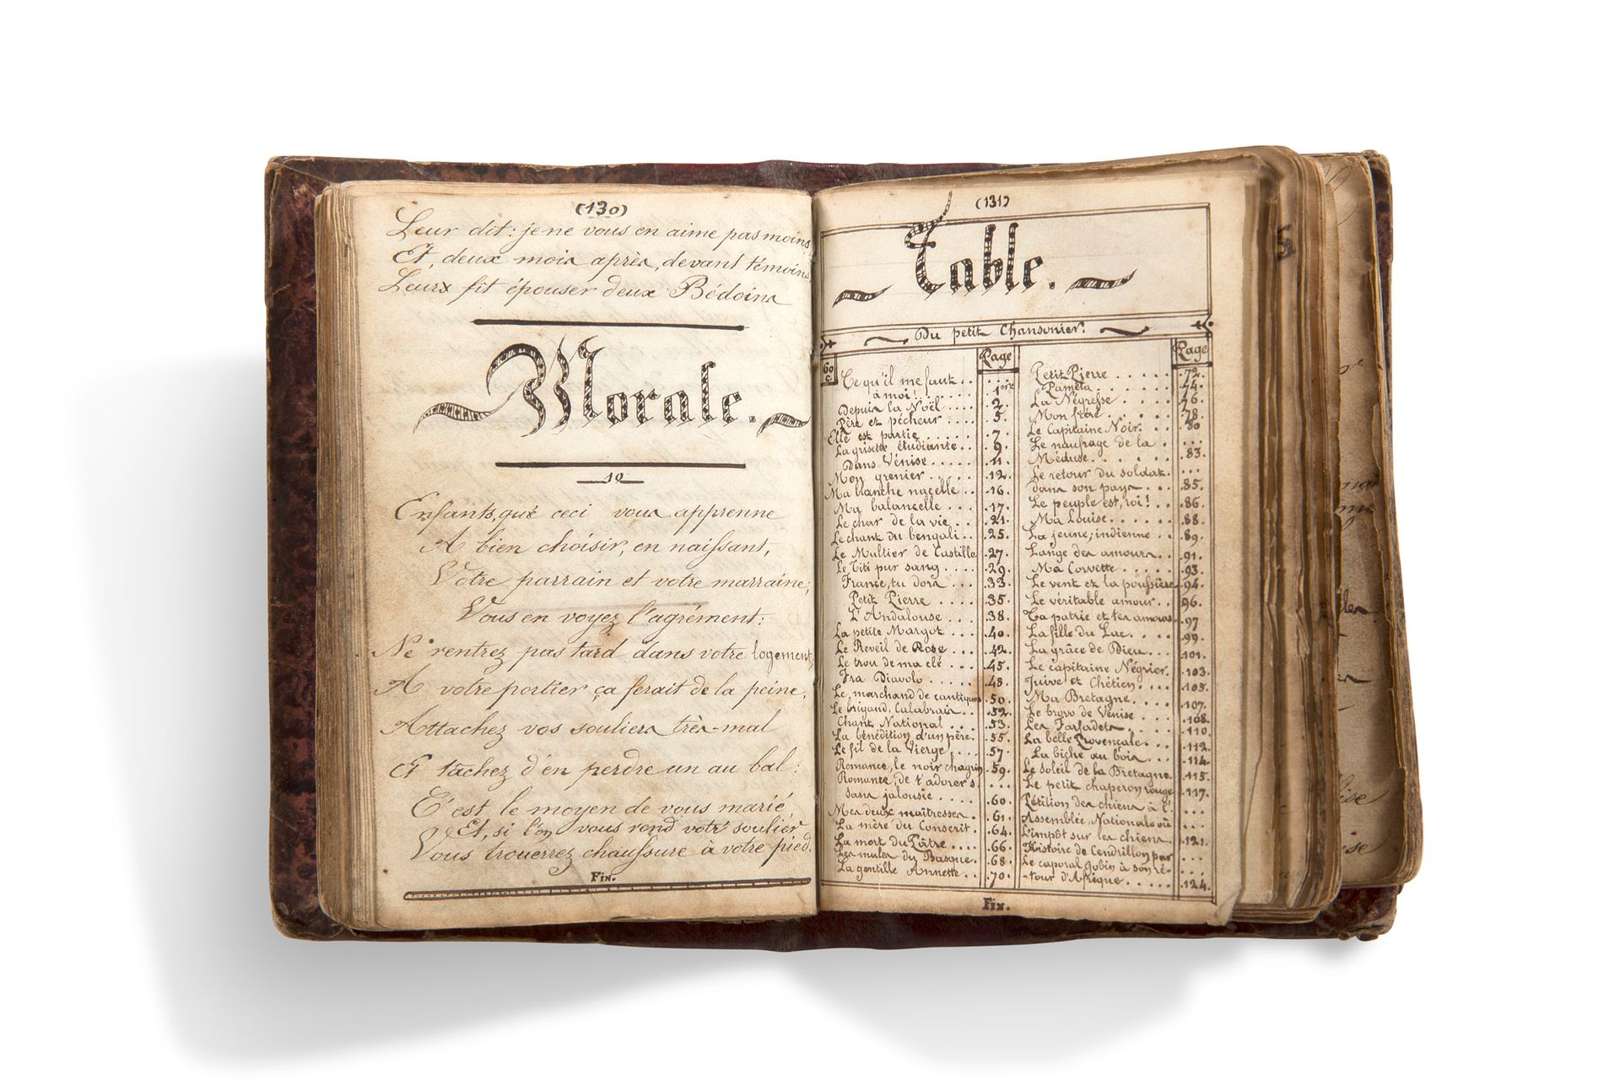 (130)
Leur dit: je ne vous en aime pas moins,
Et, deux mois après, devant témoins
Leurs fit épouser deux Bédoins
Morale.
10
Enfants, que ceci vous apprenne
A bien choisir, en naissant,
Votre parrain et votre marraine;
Vous en voyez l'agrément:
Ne rentrez pas tard dans votre logement,
A votre portier ça ferait de la peine,
Attachez vos souliers très-mal
Et tâchez d'en perdre un au bal:
C'est le moyen de vous marié,
Et, si l'on vous rend votre soulier
Vous trouerrez chaussure à votre pied.
Fin.
(131)
Table.
Du petit Chansonier.
Page
Ce qu'il me faut ..
à moi! .... 1
Depuis la Noël .... 2
Père et pécheur .... 5.
Elle est partie ..... 7
La grisette étudiante .. 9
Dans Vénise .... 11.
Mon grenier .... 12.
Ma blanche nacelle .. 16.
Ma balancelle ... 17.
Le char de la vie ... 21.
Le chant du bengali .. 25.
Le Multier de Castille 27.
Le Titi pur sang .... 29.
France, tu dors .... 33.
Petit Pierre .... 35.
L'Andalouse .... 38.
La petite Margot .... 40.
Le Réveil de Rose ... 42.
Le trou de ma clé ... 45.
Fra Diavolo .... 48.
Le marchand de cantiques 50.
Le brigand Calabrais ... 52.
Chant National .... 53.
La bénédition d'un père. 55.
Le fil de la Vierge .. 57.
Romance, le noir chagrin 59.
Romance, de t'adorer s.
sans jalousie .... 60.
Mes deux maîtresses . 61.
La mère du Conscrit. 64.
La mort du Pâtre ... 66.
Les mules du Basque. 68.
La gentille Annette .. 70.
Page
Petit Pierre ..... 72.
Paméla .... 74.
La Négresse .... 76.
Mon frère ..... 78.
Le Capitaine Noir. ... 80
Le naufrage de la . ...
Méduse ..... 83.
Le retour du soldat. ...
dans son pays .... 85.
Le peuple est roi! .. 86.
Ma Louise .... 88.
La jeune indienne .. 89.
L'ange des amours ... 91.
Ma Corvette .... 93.
Le vent et la poussière 94.
Le véritable amour .. 96.
Ta patrie et tes amours 97
La fille du Lac .... 99.
La grâce de Dieu ... 101.
Le capitaine Négrier. 103.
Juive et Chétien .... 105.
Ma Bretagne .... 107.
Le bravo de Vénise ... 108.
Les Farfadets .... 110.
La belle Provençale ... 112.
La biche au bois ... 114.
Le soleil de la Bretagne 115.
Le petit chaperon rouge 117.
Pétition des chiens à l'. ...
Assemblée Nationale où ...
L'impôt sur les chiens. 121.
Histoire de Cendrillon par ...
Le caporal Jobin à son ré- ...
tour d'Afrique ..... 124.
Fin.